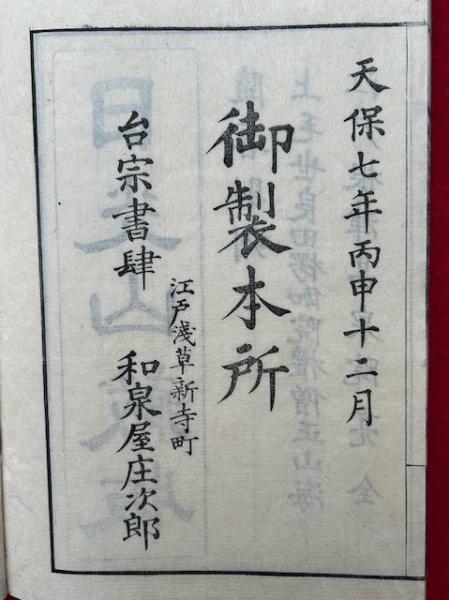 天保七年丙申十二月
御製本所
江戸淺草新寺町
台宗書肆
和泉屋庄次郎